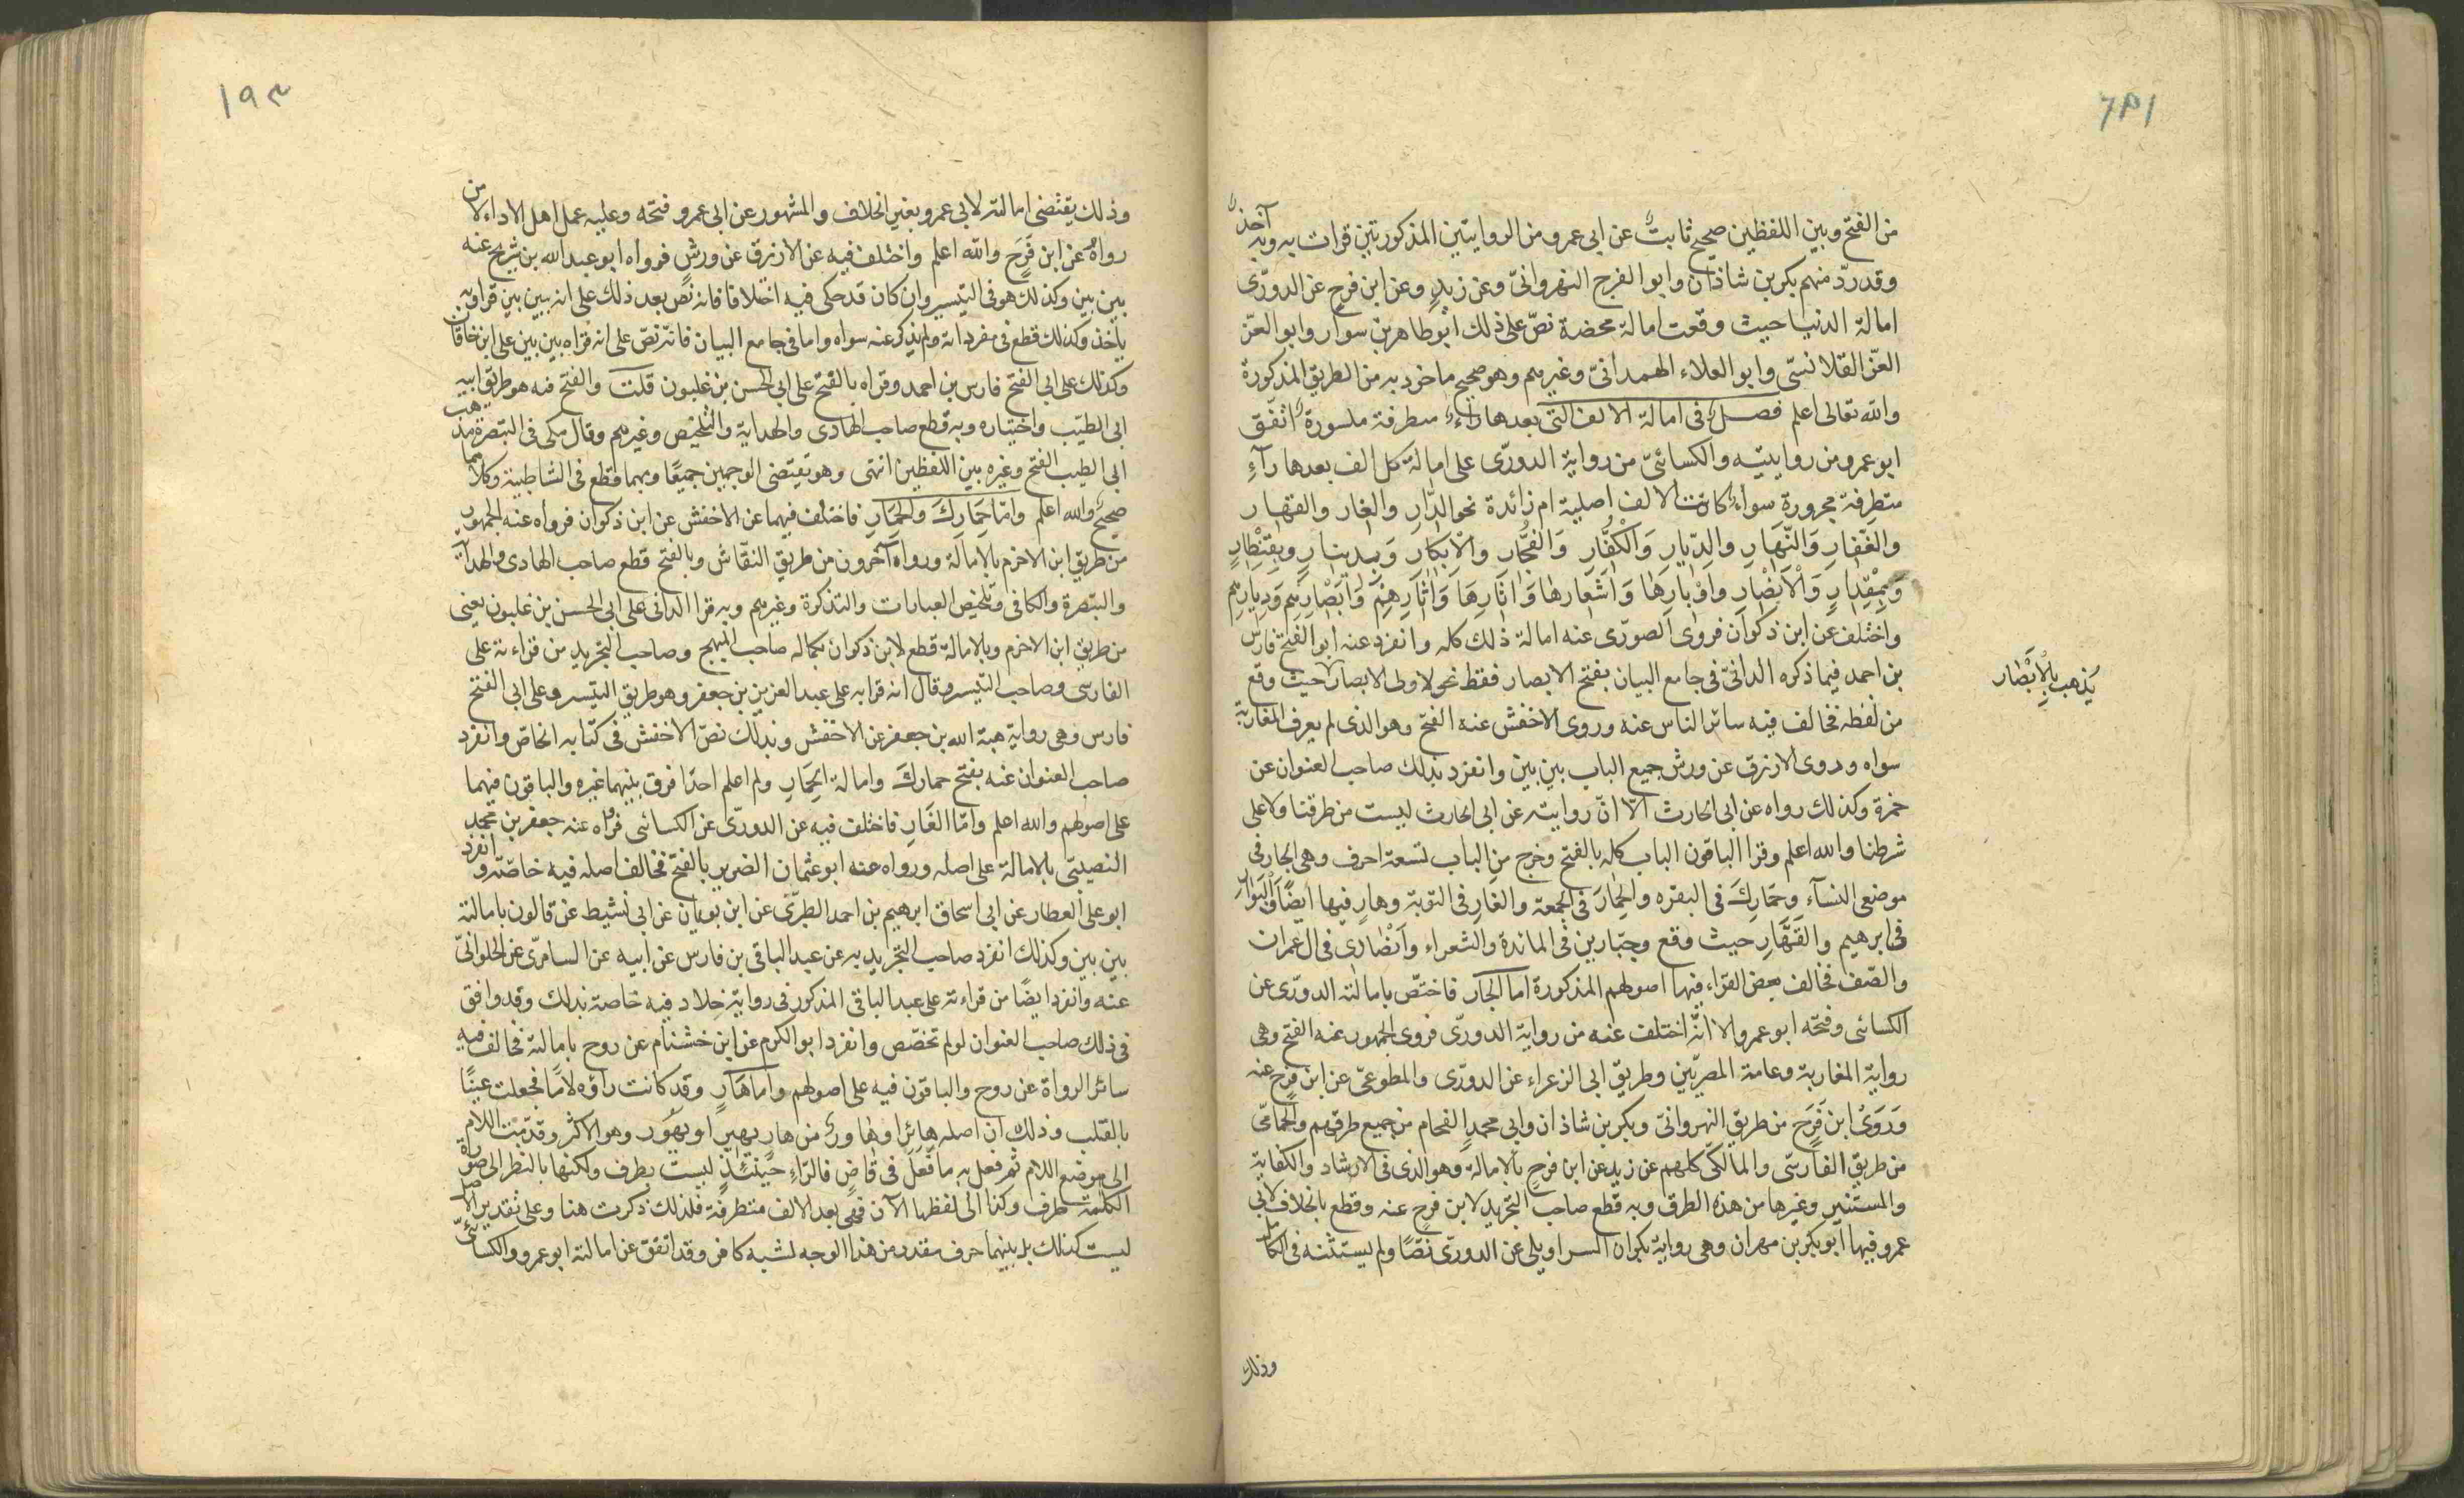 من الفتح وبين اللفظين صحيح ثابت عن ابى عمرو من الروايتين المذكورتين قرات به وبه آخذ
وقد ردّ منهم بكر بن شاذان وابو الفرج النهروانىّ وعن زيدٍ وعن ابن فرح عن الدورّى
امالة الدنيا حيث وقعت امالة محضة نصّ على ذلك ابو طاهر بن سوار وابو العزّ
العزّ القلانسّى وابو العلاء الهمدانىّ وغيرهم وهو صحيح ماخوذ به من الطريق المذكورة
والله تعالى اعلم فصل فى امالة الالف التى بعدها راءٌ متطرفة مكسورة اتّفق
ابو عمرو من روايتيه والكسائىّ من رواية الدورّى على امالة كل الف بعدها رآءٍ
متطرفة مجرورة سواء كانت الالف اصلية ام زائدة نحو الدّارِ والغار والقهار
والغَفارِ وَالنّهَارِ والدِّيَارِ وَالكُفّارِ وَالفُجَّار والاِبكَار وَبِدينارٍ وبِقِنْطَارٍ
وَبِمِقْدِارٍ وَالاَنصْارِ واوْبارِهَا وَاشْعَارِهَا وَاثَارِهَا وَاثَارِهِمَ وَابْصَارِهِم وَدِيارِهِم
واختلف عن ابن ذكوان فروى الصورّى عنه امالة ذلك كله وانفرد عنه ابو الفتح فارس
بن احمد فيما ذكره الدانىّ فى جامع البيان بفتح الابصار فقط نحو لاولى الابصار حيث وقع
يَذهب بِالاَبْصَار
من لفظه فخالف فيه سائر الناس عنه وروى الاخفش عنه الفتح وهو الذى لم يعرف المغاربة
سواه وروى الازرق عن ورش جميع الباب بين بين وانفرد بذلك صاحب العنوان عن
حمزة وكذلك رواه عن ابى الحارث الّا انّ روايته عن ابى الحارث ليست من طرقنا ولا على
شرطنا والله اعلم وقرا الباقون الباب كله بالفتح وخرج من الباب تسعة احرف وهى الجار فى
موضعى النسآء وحمَارِكَ فى البقره والحِمَارِ فى الجمعة والغَارِ فى التوبة وهارٍ فيها ايضًا والبَوَارِ
فى ابرهيم والقَهَّارِ حيث وقع وجبّارين فى المائدة والشعراء وانصَارى فى ال عمران
والصّف فخالف بعض القراء فيها اصولهم المذكورة اما الجَار فاختصّ بامالته الدورّى عن
الكسائى وفتحه ابو عمرو الا انّه اختلف عنه من رواية الدورّى فروى الجمهور عنه الفتح وهى
رواية المغاربة وعامة المصريّين وطريق ابى الزعراء عن الدورّى والمطوعىّ عن ابن فرح عنه
وَرَوَىْ ابن فَرَحٍ من طريق النهروانىّ وبكر بن شاذان وابى محمدٍ الفحام من جميع طرقهم والحمّامىّ
من طريق الفارسّى والمالكىّ كلهم عن زيد عن ابن فرحٍ بالامالة وهو الذى فى الارشاد والكفاية
والمستنير وغيرها من هذه الطرق وبه قطع صاحب التجريد لابن فرحٍ عنه وقطع بالخلاف لابى
عمرو فيها ابو بكر بن مهران وهى رواية بكران السراويلى عن الدورّى نصًّا ولم يستثنه فى الكامل
وذلك
١٩٣
وذلك يقتضى امالته لابى عمرو بغير الخلاف والمشهور عن ابى عمرو فتحه وعليه عمل اهل الاداء الا من
رواهُ عن ابن فَرَحٍ والله اعلم واختلف فيه عن الازرق عن ورشٍ فرواه ابو عبد الله بن شريح عنه
بين بين وكذلك هو فى التيسير وان كان قد حكى فيه اختلافا فانه نصّ بعد ذلك على انه بين بين قرا وبه
ياخذ وكذلك قطع فى مفرداته ولم يذكر عنه سواه واما فى جامع البيان فانّه نصّ على انه قراه بين بين على ابن خاقان
وكذلك على ابى الفتح فارس بن احمد وقراه بالفتح على ابى الحسن بن غلبون قلت والفتح فيه هو طريق ابيه
ابى الطيّب واختياره وبه قطع صاحب الهادى والهداية والتلخيص وغيرهم وقال مكى فى التبصرة مذهب
ابى الطيب الفتح وغيره بين اللفظين انتهى وهو يقتضى الوجهين جميعًا وبهما قطع فى الشاطبية وكلاهما
صحيحٌ والله اعلم وامّا حِمَارِكَ والحِمَارِ فاختلف فيهما عن الاخفش عن ابن ذكوان فرواه عنه الجمهور
من طريق ابن الاخرم بالامالة ورواه آخرون من طريق النقّاش وبالفتح قطع صاحب الهادى والهداية
والتبصرة والكافى وتلخيص العبارات والتذكرة وغيرهم وبه قرا الدانى على ابى الحسن بن غلبون يعنى
من طريق ابن الاخرم وبالامالة قطع لابن ذكوان بكماله صاحب المبهج وصاحب التجريد من قراءته على
الفارسى وصاحب التيسير وقال انه قرا به على عبد العزيز بن جعفر وهو طريق التيسير وعلى ابى الفتح
فارس وهى رواية هبة الله بن جعفر عن الاخفش وبذلك نصّ الاخفش فى كتابه الخاصّ وانفرد
صاحب العنوان عنه بفتح حمارك وامالة الحِمَارِ ولم اعلم احدًا فرق بينهما غيره والباقون فيهما
على اصولهم والله اعلم وامّا الغَارِ فاختلف فيه عن الدورّى عن الكسائى فرواه عنه جعفر بن محمد
النصيبىّ بالامالة على اصله ورواه عنه ابو عثمان الضرير بالفتح فخالف اصله فيه خاصّة وانفرد
ابو على العطار عن ابى اسحاق ابرهيم بن احمد الطبرّى عن ابن بويان عن ابى نشيط عن قالون بامالته
بين بين وكذلك انفرد صاحب التجريد به عن عبد الباقى بن فارس عن ابيه عن السامرّى عن الحلوانىّ
عنه وانفرد ايضًا من قراءته على عبد الباقى المذكور فى رواية خلاد فيه خاصة بذلك وقد وافق
فى ذلك صاحب العنوان لو لم تخصّص وانفرد ابو الكرم عن ابن خشنام عن روح بامالته فخالف فيه
سائر الرواة عن روح والباقون فيه على اصولهم واما هَارٍ وقد كانت راؤه لامًا فجعلت عينًا
بالقلب وذلك ان اصله هائر او هاور من هار يهير او يهُوْر وهو الاكثر وقدّمت اللام
الى موضع اللام ثم فعل به ما فُعِلَ فى قاضٍ فالرّاء حينئذٍ ليست بطرف ولكنها بالنظر الى صورة
الكلمة طرف وكذا الى لفظها الآن فهى بعد الالف متطرفة فلذلك ذكرت هنا وعلى تقدير الاصل
ليست كذلك بل بينهما حرف مقدر من هذا الوجه لشبه كافر وقد اتفق عن امالته ابو عمرو والكسائىّ